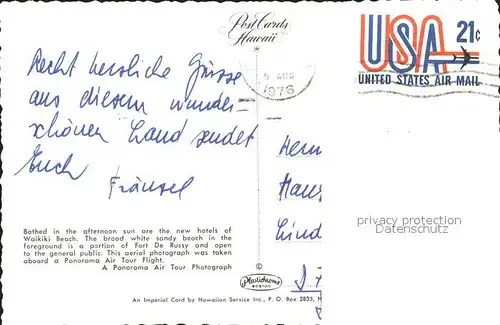 Post Cards
Hawaii
USA 21¢
UNITED STATES AIR MAIL
AUG
1976
Recht herzliche Grüsse
aus diesem wunder-
schönen Land sendet
Euch
Fränzel
Herrn
Hans
Lind
privacy protection
Datenschutz
Bathed in the afternoon sun are the new hotels of
Waikiki Beach. The broad white sandy beach in the
foreground is a portion of Fort De Russy and open
to the general public. This aerial photograph was taken
aboard a Panorama Air Tour Flight.
A Panorama Air Tour Photograph
©
Plastichrome
BOSTON
An Imperial Card by Hawaiian Service Inc., P. O. Box 2835, H